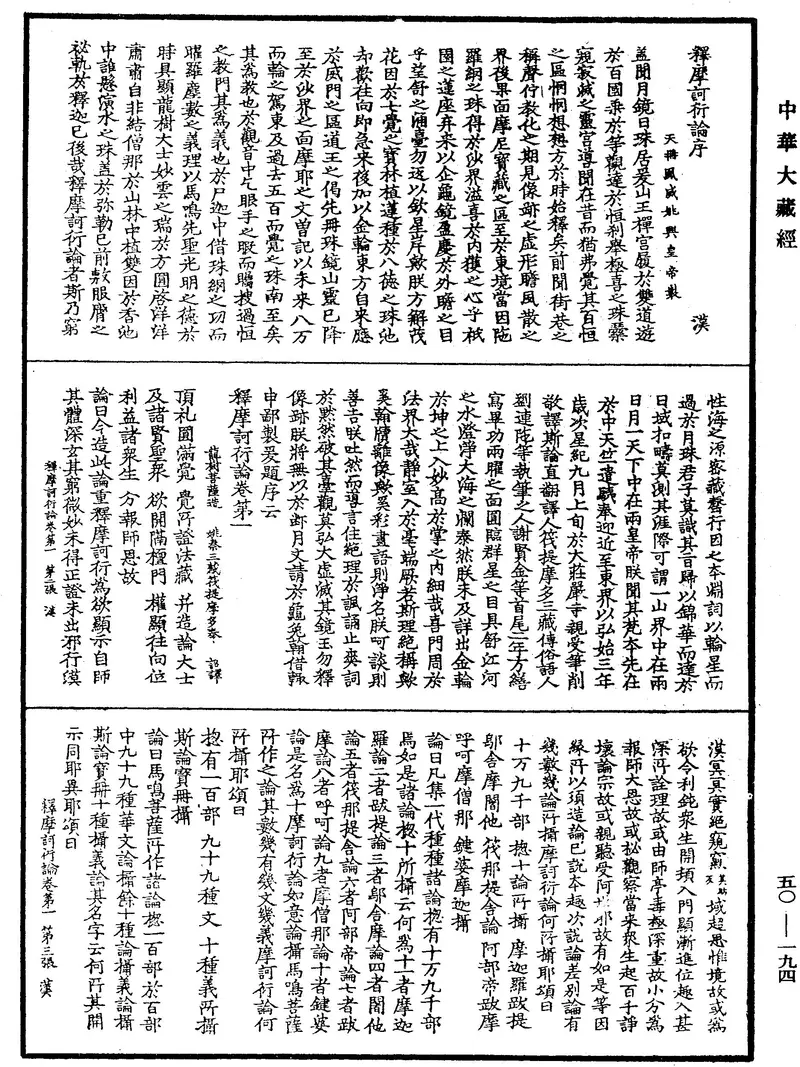 中華大藏經
釋摩訶衍論序
漢
天冊鳳威姚興皇帝製
蓋聞月鏡日珠居爰山王禪宮殿於雙道遊
於百國乘於等觀達於恒刹舉極喜之珠羅
窺寂滅之靈宮導聞在昔而猶弗覺其百恒
之區惘惘想想方於時始釋矣前聞街巷之
稱聲付教化之期見像跡之虛形瞻風散之
界後果面摩尼寶藏之區至於東境當因陁
羅網之珠得於沙界溢喜於內獲之心子祇
園之蓮座弃采以企龜鏡盈慶於外瞻之目
乎望舒之
花因於七覺之寶林植蓮種於八德之珠池
却歡往向即急來後加以金輪東方自來應
於威門之區道王之偈先冊珠鏡山靈已降
至於沙界之面摩耶之文曽記以未來八万
而輪之駕東及過去五百而覺之珠南至矣
其為教也於觀音中乞眼手之
之教門其為義也於尸迦中借珠網之功而
曜羅塵數之義理以馬鳴先聖光明之德於
時具顯龍樹大士妙雲之瑞於方圓啓洋洋
肅肅自非結僧那於山林中植雙因於香池
中誰懸演水之珠蓋於弥勒已前敷服膺之
祕軌於釋迦已後哉釋摩訶衍論者斯乃窮
性海之源密藏罄行因之本淵詞以輪星而
過於月珠君子莫識其百歸以錦華而達於
日域扣疇莫測其涯際可謂一山界中在兩
日月一天下中在兩皇帝朕聞其梵本先在
於中天竺遣驎奉迎近至東界以弘始三年
歲次星紀九月上旬於大莊嚴寺親受筆削
敬譯斯論直翻譯人筏提摩多三藏傳俗語人
劉連陁等執筆之人謝賢金等首尾二年方繕
寫畢功兩曜之面圓臨群星之目具舒江河
之水澄淨大海之瀾泰然朕未及詳出金輪
於坤之上入妙高於掌之內細哉喜門周於
法界大哉靜室入於毫端厥若斯理絕稱歟
奚翰牘雖像歟奚彩畫語則淨名朕呵談則
善吉朕吐然而導言住絕理於諷誦止爽詞
於默然破其臺觀莫弘大虛滅其鏡玉勿釋
像跡朕將無以於邺月文請於龜兔翰借輙
申鄙製爰題序云
釋摩訶衍論卷第一
龍樹菩薩造 姚秦三藏筏提摩多奉詔譯
頂礼圓滿覺 覺所證法藏 并造論大士
及諸賢聖衆 欲開隔檀門 權顯往向位
利益諸衆生 方報師恩故
論曰今造此論重釋摩訶衍為欲顯示自師
其體深玄其窮微妙未得正證未出邪行漠
釋摩訶衍論卷第一 第二張 漢
漠冥冥實絕窺窬 域超思惟境故或為
欲令利鈍衆生開頓入門顯漸進位趣入甚
深所詮理故或由師亭毒極深重故小分為
報師大恩故或祕觀察當來衆生起百千諍
壞論宗故或親聽受阿 邪故有如是等因
緣所以須造論已說本趣次說論差別論有
幾數幾論所攝摩訶衍論何所攝耶頌曰
十万九千部 揔十論所攝 摩迦羅䟦提
邬舍摩閣他 筏那提舍論 阿部帝䟦摩
呼呵摩僧那 鍵婆摩迦攝
論曰凡集一代種種諸論揔有十万九千部
焉如是諸論揔十所攝云何為十一者摩迦
羅論二者䟦提論三者邬舍摩論四者閣他
論五者筏那提舍論六者阿部帝論七者䟦
摩論八者呼呵論九者摩僧那論十者鍵婆
論是名為十摩訶衍論如意論攝馬鳴菩薩
所作之論其數幾有幾文幾義摩訶衍論何
所攝耶頌曰
揔有一百部 九十九種文 十種義所攝
斯論寶冊攝
論曰馬鳴菩薩所作諸論揔一百部於百部
中九十九種華文論攝餘十種論攝義論攝
斯論寶冊十種攝義論其名字云何所其開
示同耶異耶頌曰
釋摩訶衍論卷第一 第三張 漢
五〇—一九四